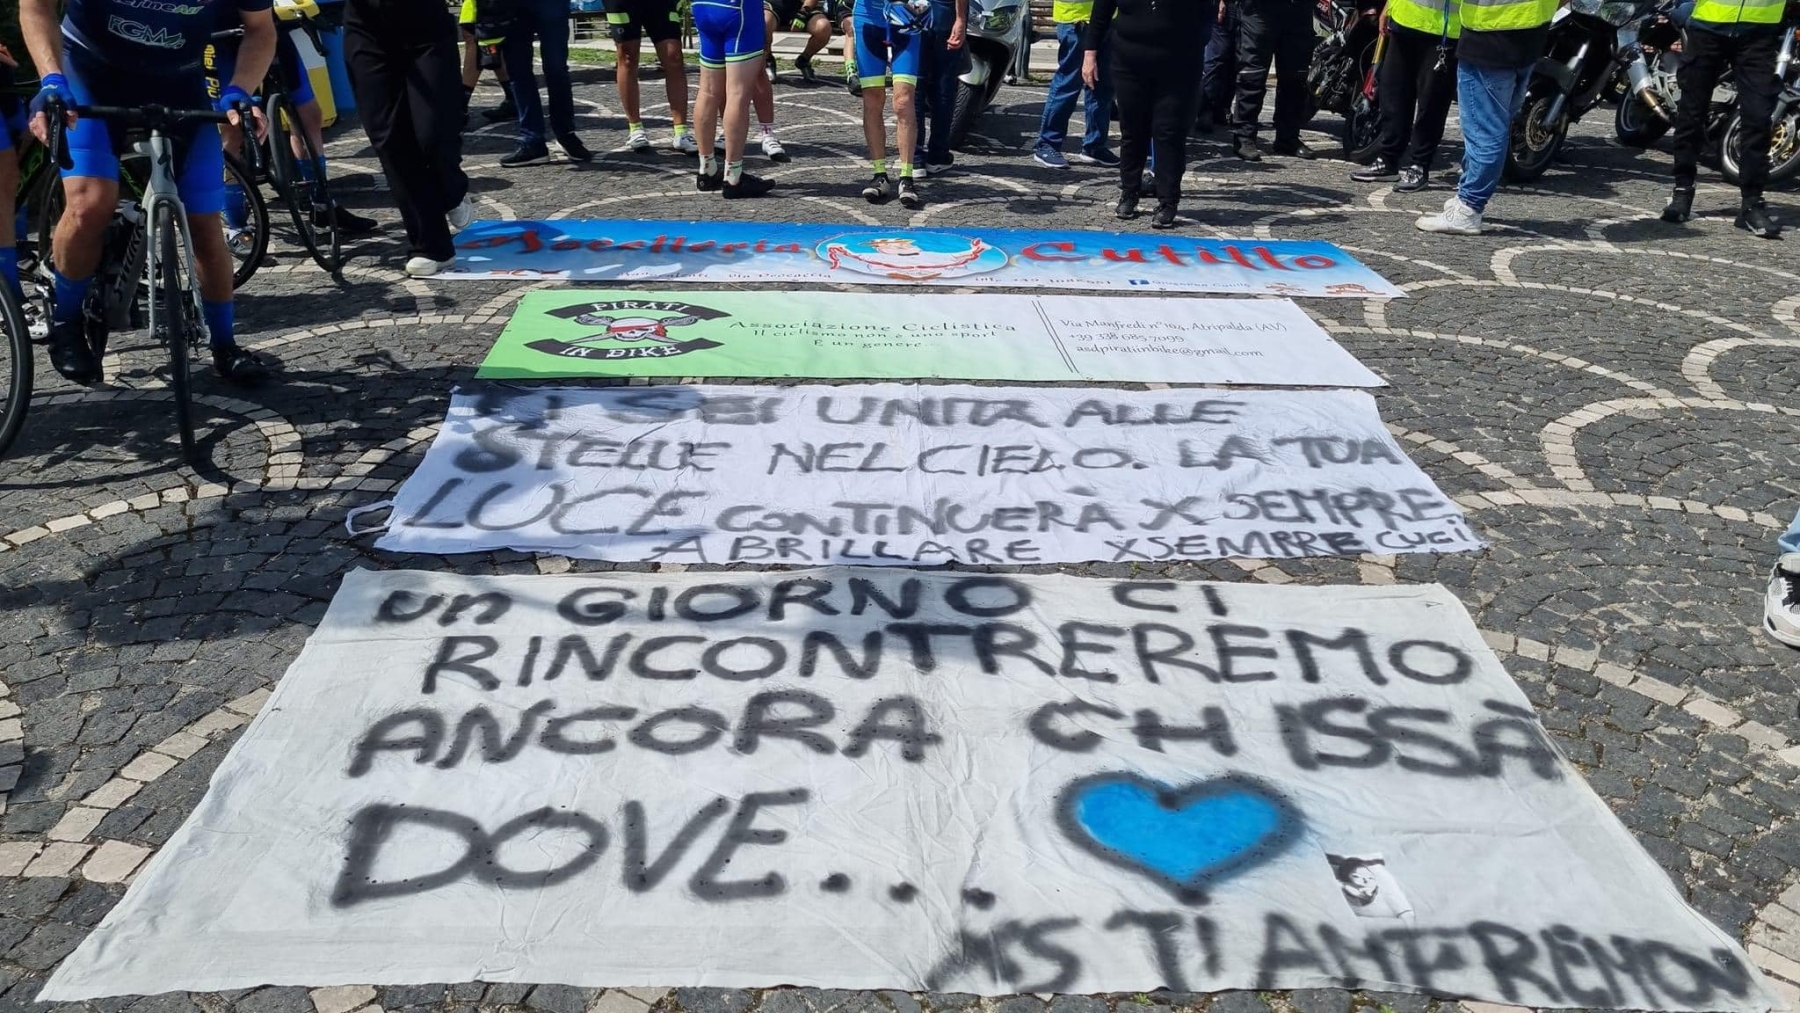 Cutillo
PIRATI
IN BIKE
Associazione Ciclistica
Il ciclismo non è uno sport
È un genere...
Via Manfredi n° 104, Atripalda (AV)
+39 338 685 7099
asdpiratiinbike@gmail.com
TI SEI UNITA ALLE
STELLE NEL CIELO. LA TUA
LUCE CONTINUERÀ X SEMPRE
A BRILLARE XSEMPRE CUGI
un GIORNO CI
RINCONTREREMO
ANCORA CHISSÀ
DOVE....
TI AMEREMO